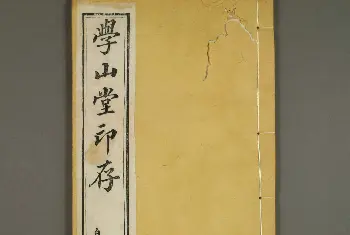 學山堂印存